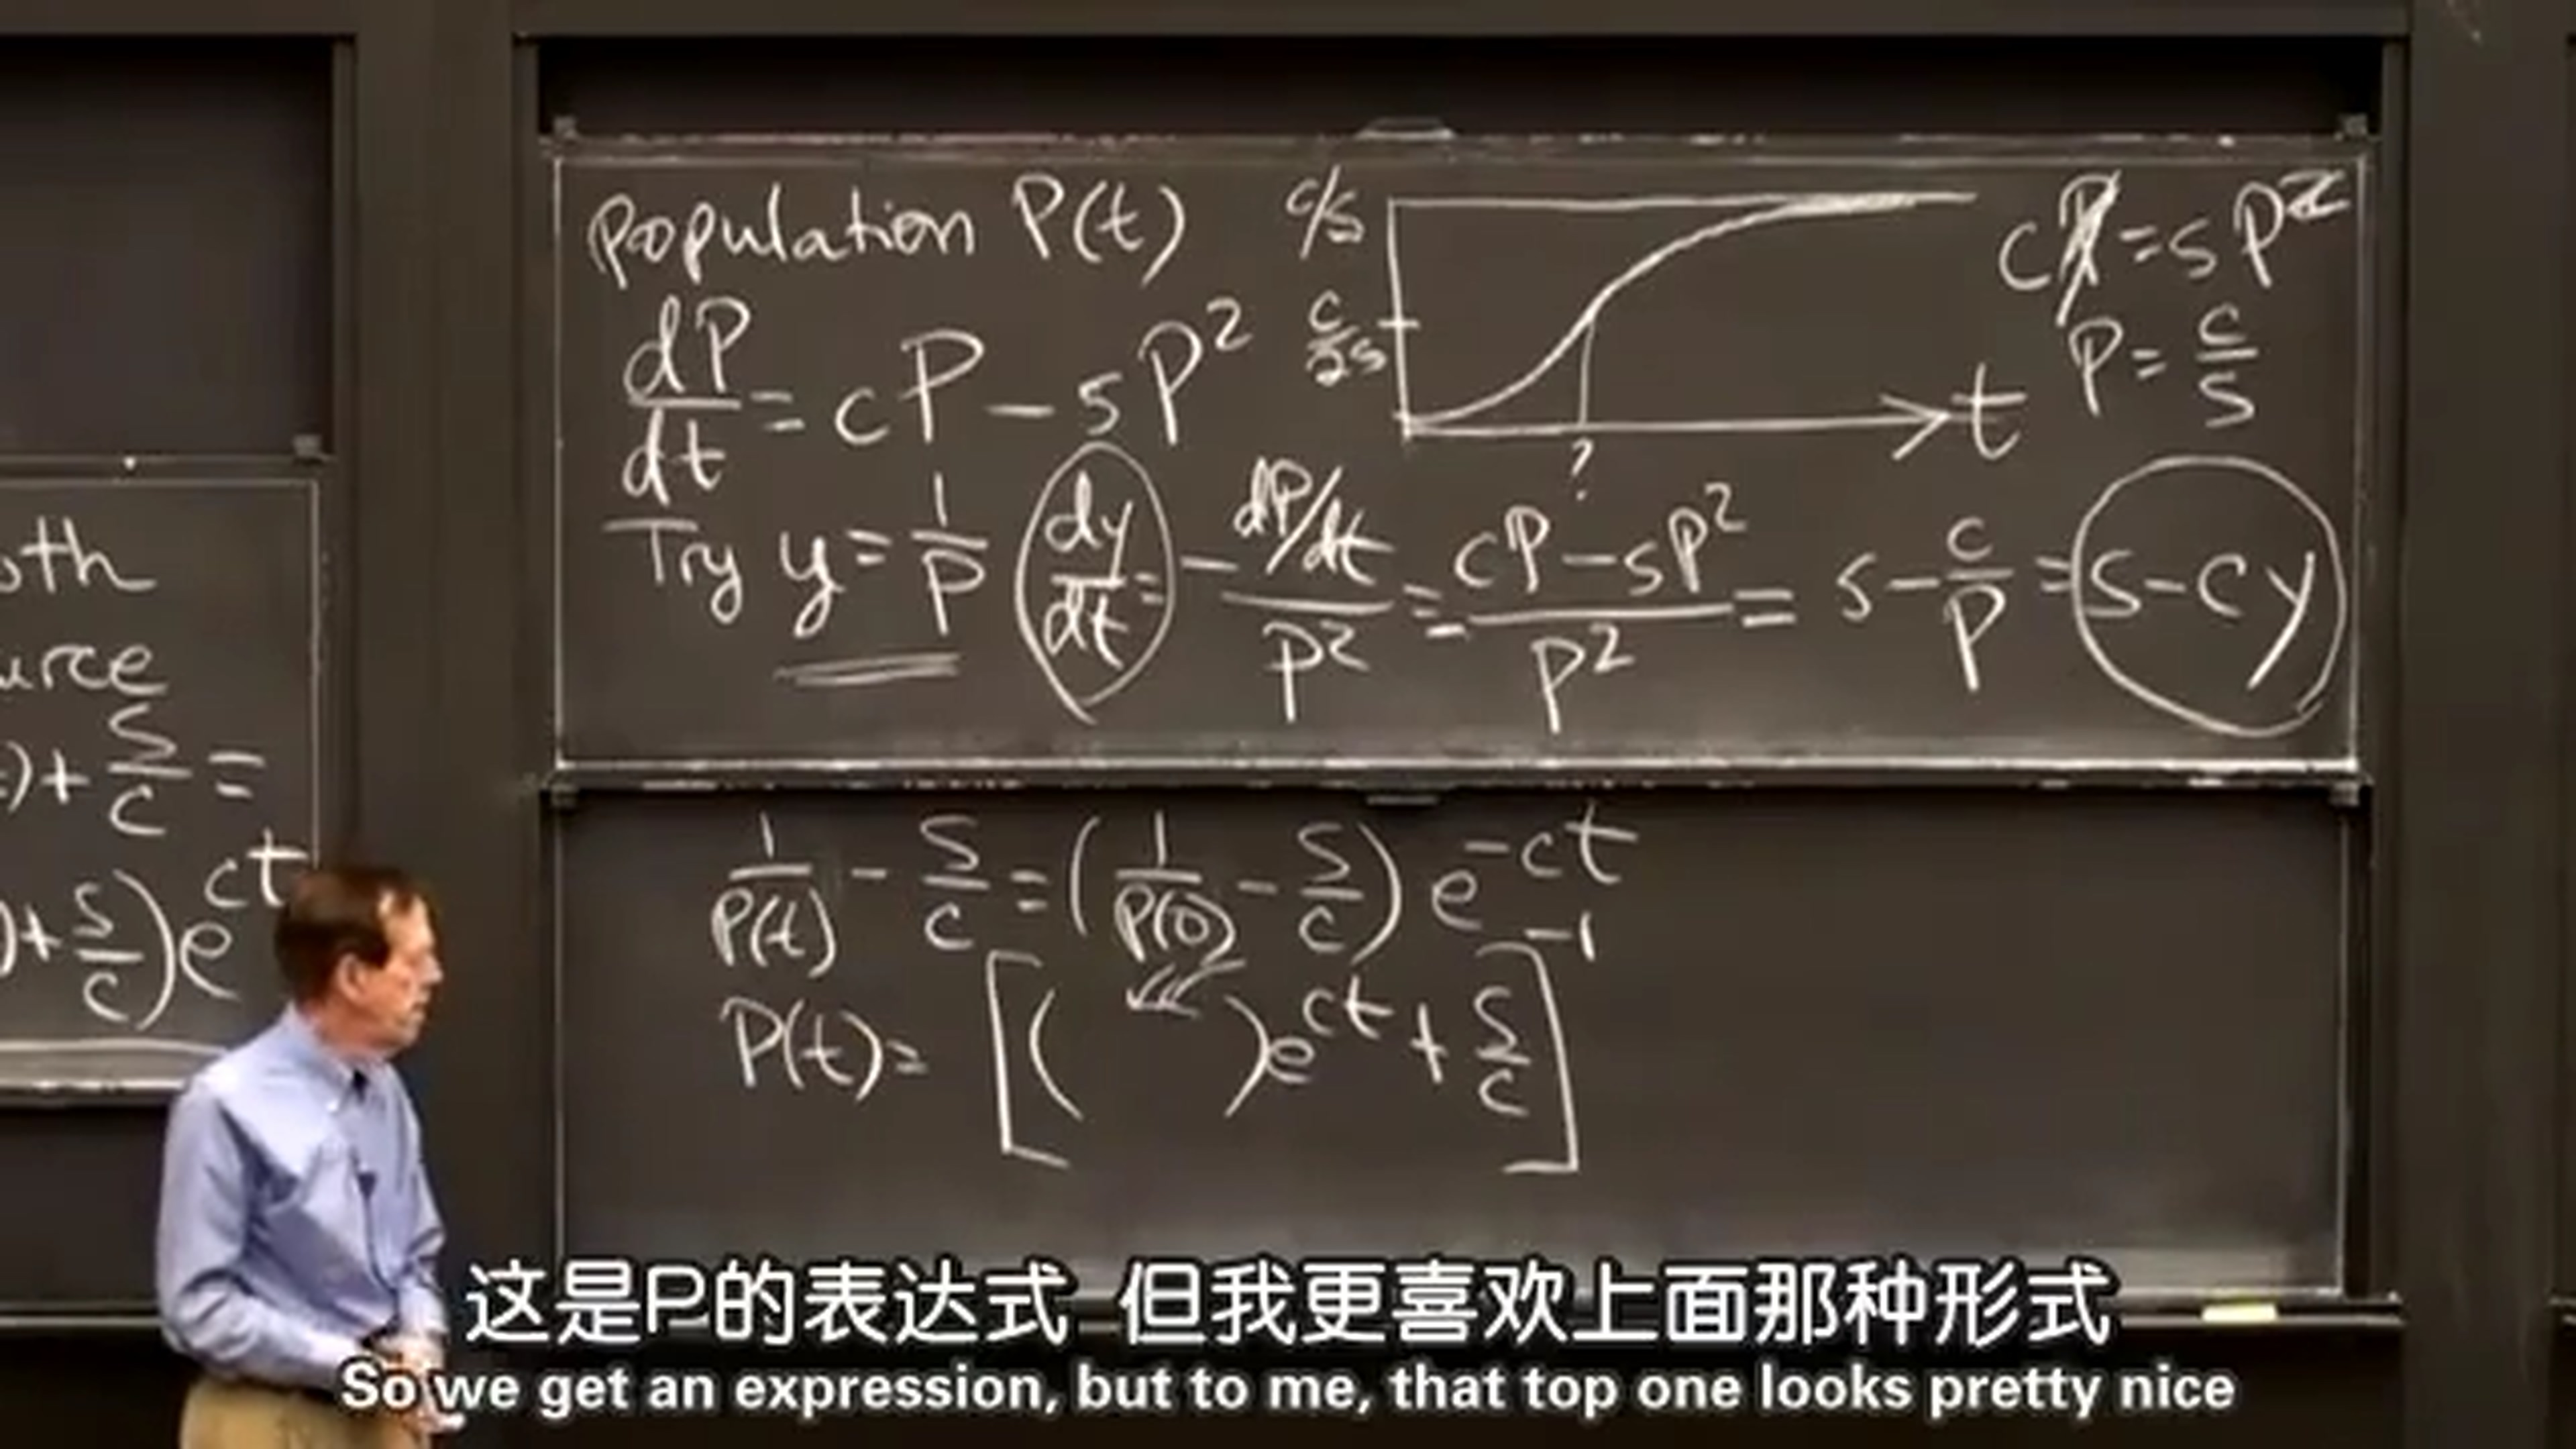 oth
urce
)+ S/C =
)+ S/C) e^ct
population P(t)
dP/dt = cP - sP²
c/s
c/2s
t
?
cP = sP²
P = c/s
Try y = 1/P dy/dt = - dP/dt / P² = cP - sP² / P² = s - c/P = s - cy
1/P(t) - s/c = (1/P(0) - s/c) e^-ct
P(t) = [( )e^ct + s/c]^-1
这是P的表达式 但我更喜欢上面那种形式
So we get an expression, but to me, that top one looks pretty nice